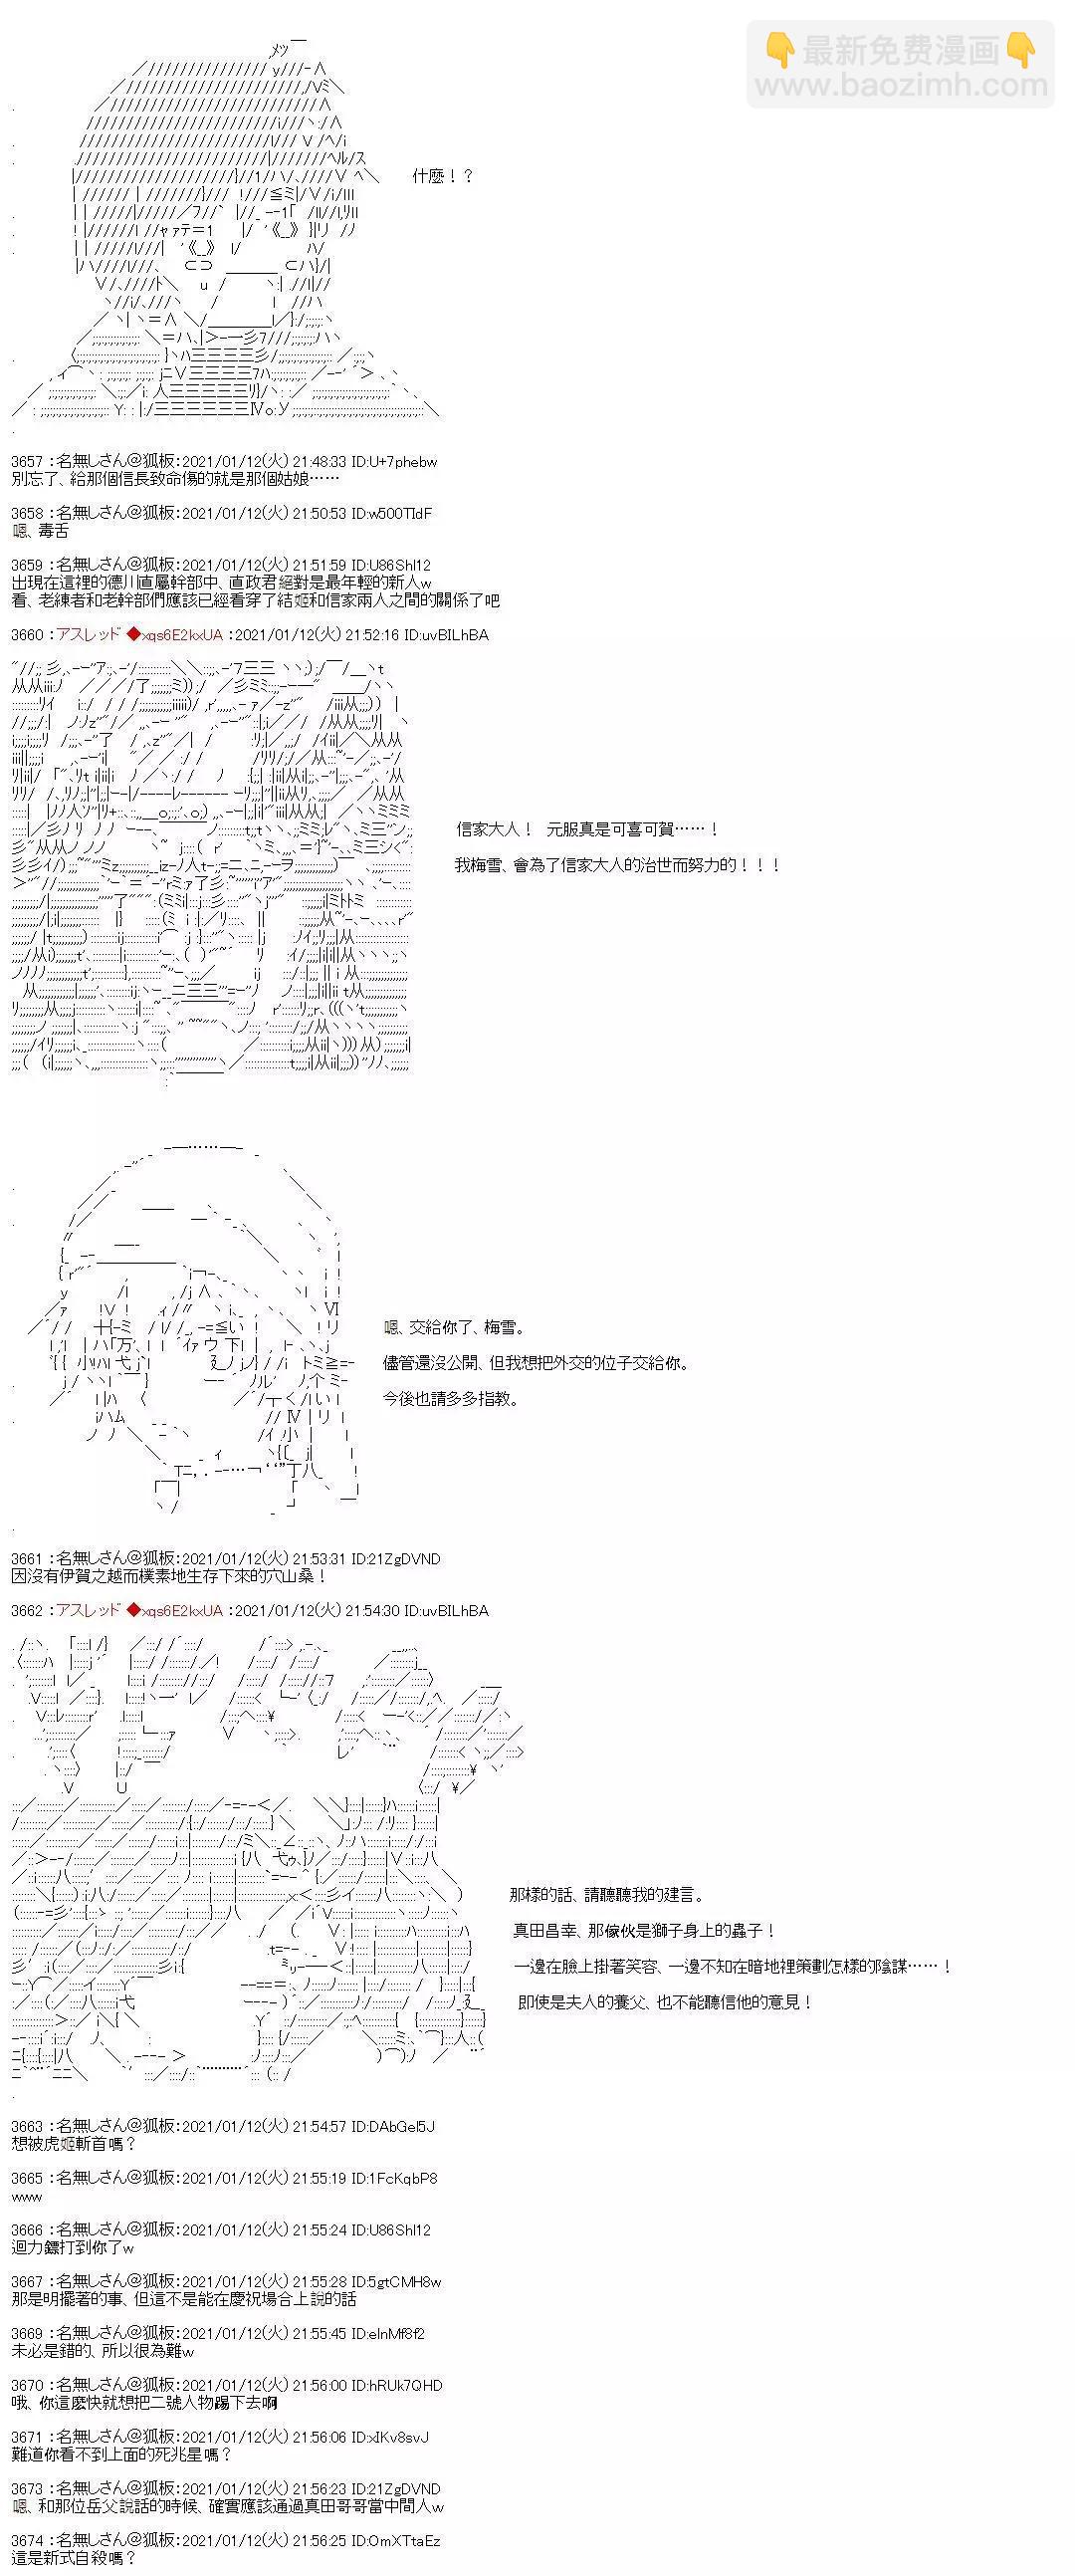 👇最新免费漫画👇
www.baozimh.com
什麼！？
3657 ：名無しさん＠狐板：2021/01/12(火) 21:48:33 ID:U+7phebw
別忘了、給那個信長致命傷的就是那個姑娘……
3658 ：名無しさん＠狐板：2021/01/12(火) 21:50:53 ID:w500TIdF
嗯、毒舌
3659 ：名無しさん＠狐板：2021/01/12(火) 21:51:59 ID:U86Shl12
出現在這裡的德川直屬幹部中、直政君絕對是最年輕的新人w
看、老練者和老幹部們應該已經看穿了結姬和信家兩人之間的關係了吧
3660 ：アスレッド ◆xqs6E2kxUA ：2021/01/12(火) 21:52:16 ID:uvBILhBA
信家大人！　元服真是可喜可賀……！
我梅雪、會為了信家大人的治世而努力的！！！
嗯、交給你了、梅雪。
儘管還沒公開、但我想把外交的位子交給你。
今後也請多多指教。
3661 ：名無しさん＠狐板：2021/01/12(火) 21:53:31 ID:21ZgDVND
因沒有伊賀之越而樸素地生存下來的穴山桑！
3662 ：アスレッド ◆xqs6E2kxUA ：2021/01/12(火) 21:54:30 ID:uvBILhBA
那樣的話、請聽聽我的建言。
真田昌幸、那傢伙是獅子身上的蟲子！
一邊在臉上掛著笑容、一邊不知在暗地裡策劃怎樣的陰謀……！
即使是夫人的養父、也不能聽信他的意見！
3663 ：名無しさん＠狐板：2021/01/12(火) 21:54:57 ID:DAbGel5J
想被虎姬斬首嗎？
3665 ：名無しさん＠狐板：2021/01/12(火) 21:55:19 ID:1FcKqbP8
www
3666 ：名無しさん＠狐板：2021/01/12(火) 21:55:24 ID:U86Shl12
迴力鏢打到你了w
3667 ：名無しさん＠狐板：2021/01/12(火) 21:55:28 ID:5gtCMH8w
那是明擺著的事、但這不是能在慶祝場合上說的話
3669 ：名無しさん＠狐板：2021/01/12(火) 21:55:45 ID:eInMf8f2
未必是錯的、所以很為難w
3670 ：名無しさん＠狐板：2021/01/12(火) 21:56:00 ID:hRUk7QHD
哦、你這麼快就想把二號人物踢下去啊
3671 ：名無しさん＠狐板：2021/01/12(火) 21:56:06 ID:xIKv8svJ
難道你看不到上面的死兆星嗎？
3673 ：名無しさん＠狐板：2021/01/12(火) 21:56:23 ID:21ZgDVND
嗯、和那位岳父說話的時候、確實應該通過真田哥哥當中間人w
3674 ：名無しさん＠狐板：2021/01/12(火) 21:56:25 ID:OmXTtaEz
這是新式自殺嗎？